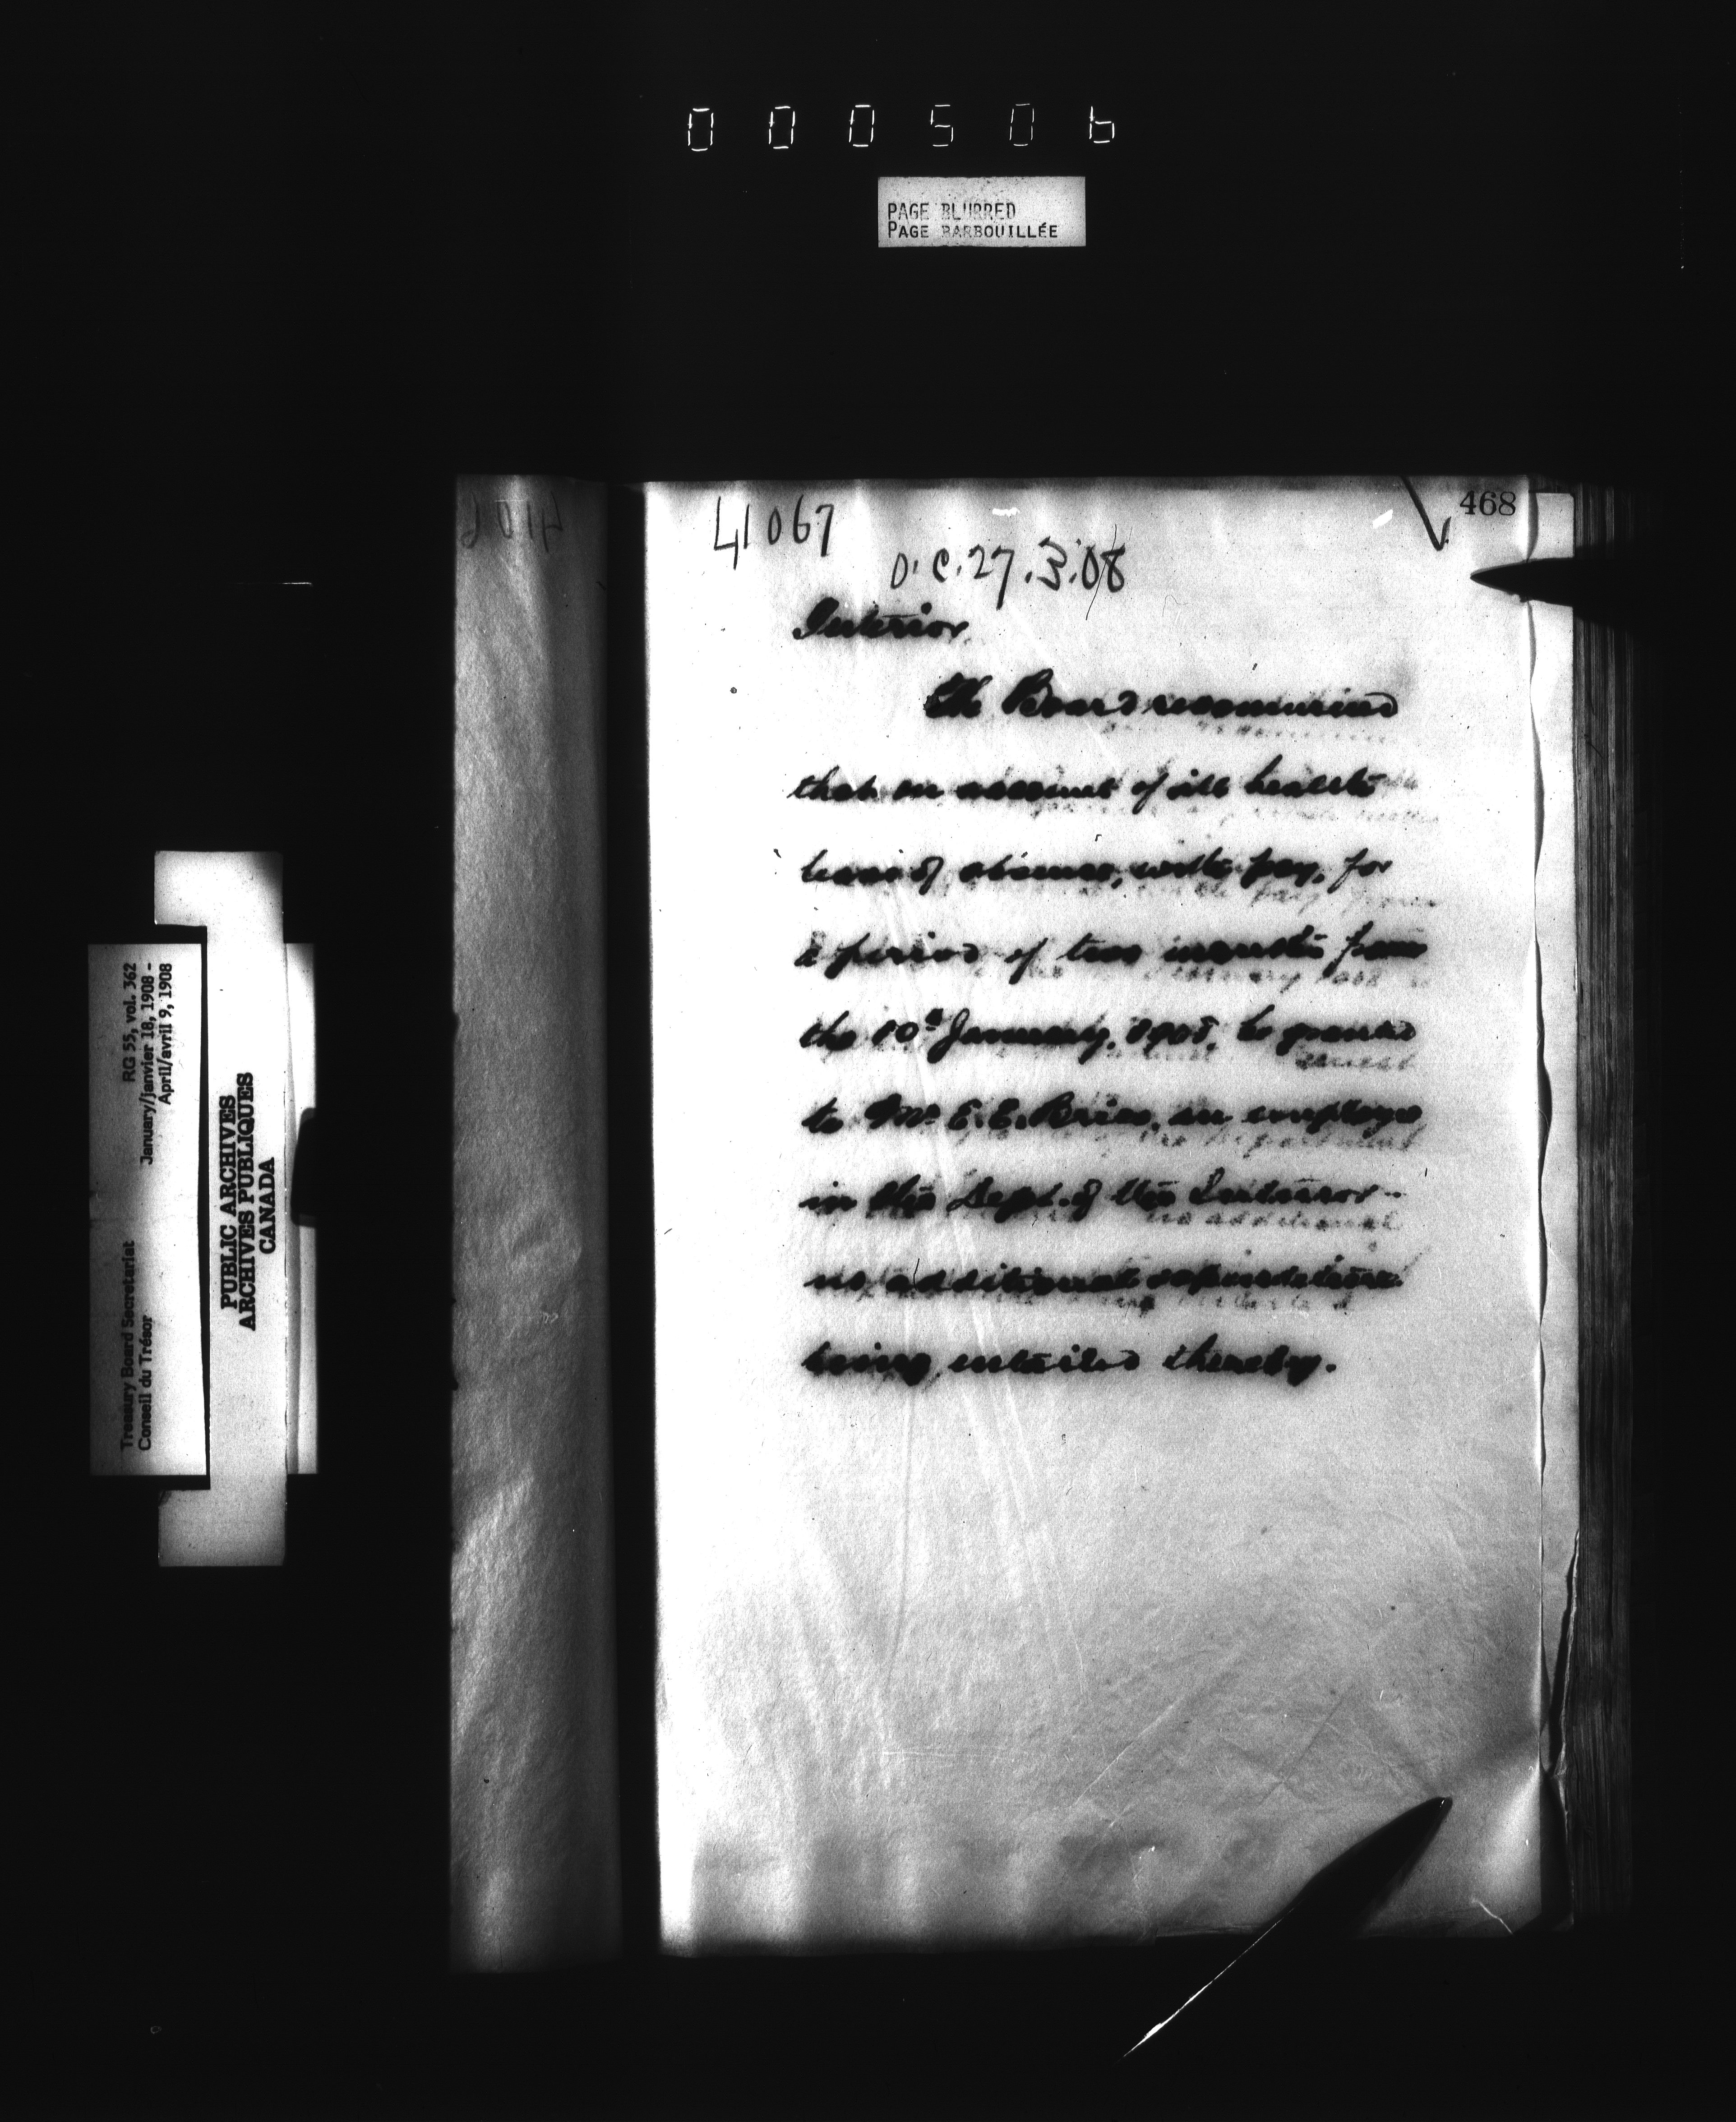 000506
PAGE BLURRED
PAGE BARBOUILLÉE
468
41067
O.C. 27.3.08
Interior
The Board recommend
that on account of ill health
leave of absence, with pay, for
a period of two months from
the 10th January, 1908, be granted
to Mr E. E. Brice, an employee
in the Dept. of the Interior -
no additional expenditure
being entailed thereby.
RG 55, vol. 362
January/janvier 18, 1908 -
April/avril 9, 1908
Treasury Board Secretariat
Conseil du Trésor
PUBLIC ARCHIVES
ARCHIVES PUBLIQUES
CANADA